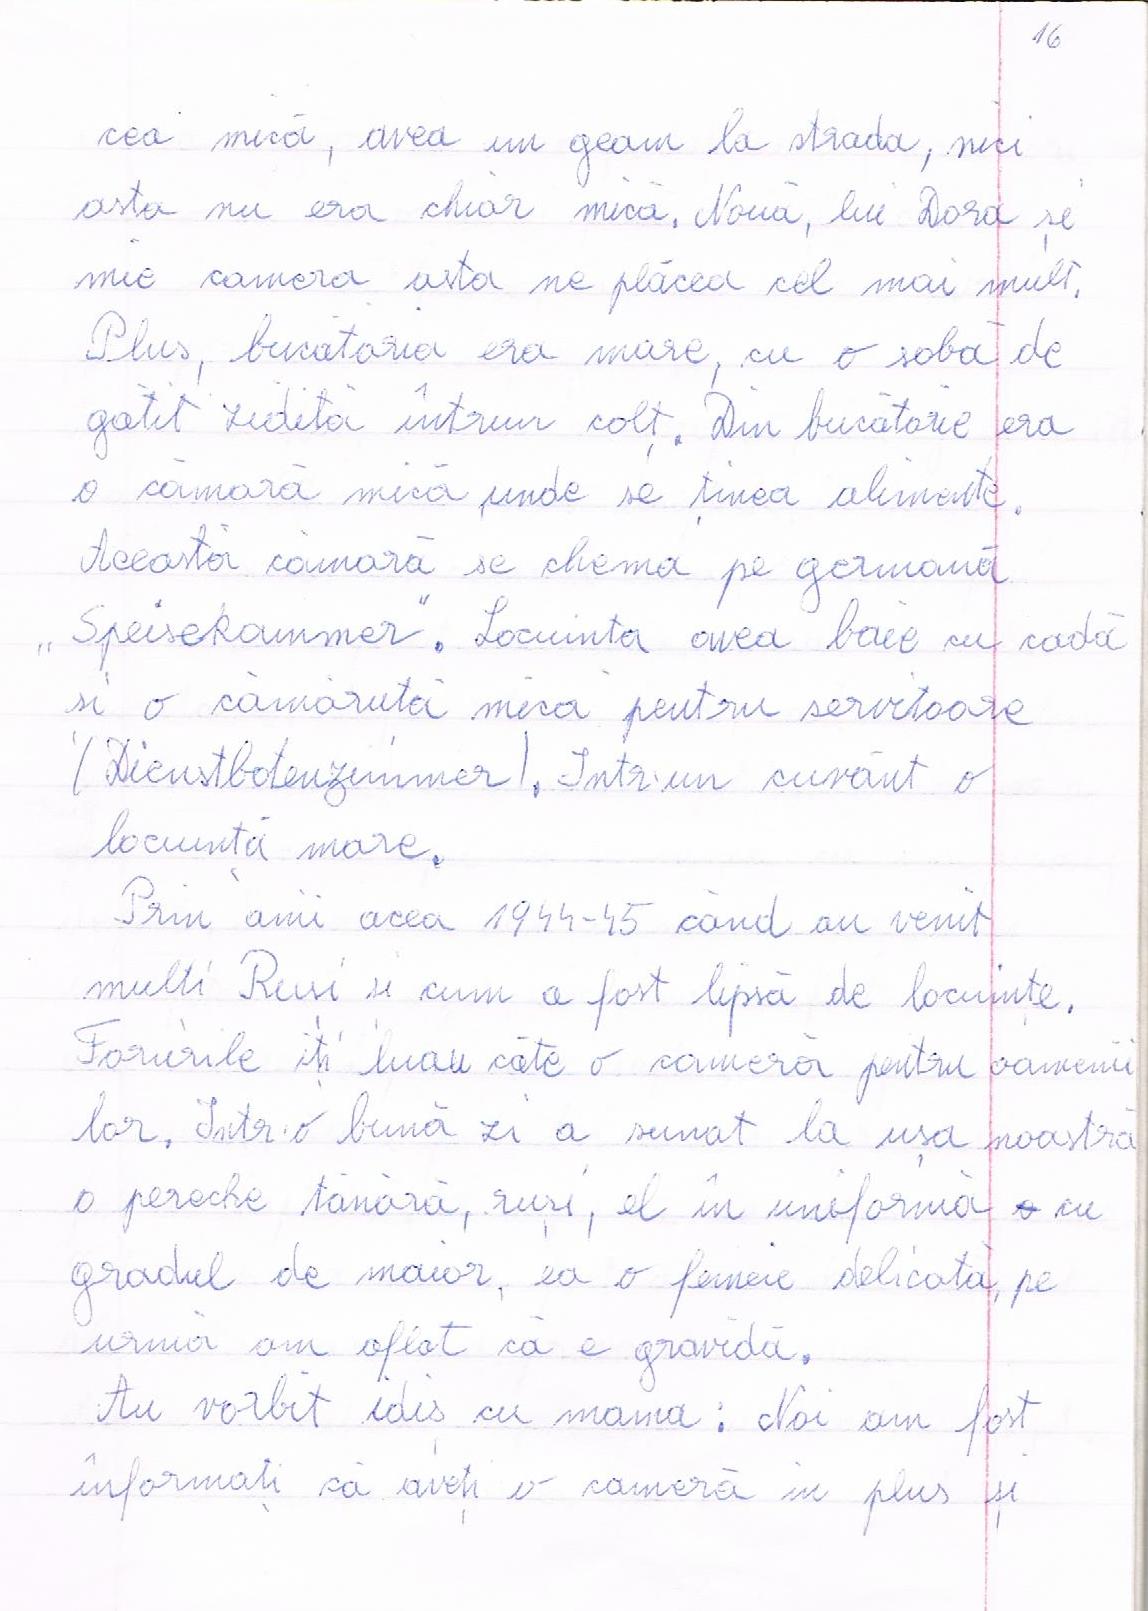 16
cea mică, avea un geam la strada, nici
asta nu era chiar mică. Nouă, lui Dora și
mie camera asta ne plăcea cel mai mult.
Plus, bucătăria era mare, cu o sobă de
gătit zidită întrun colț. Din bucătărie era
o cămară mică unde se ținea alimente.
Această cămară se chema pe germană
„Speisekammer". Locuinta avea baie cu cadă
si o cămăruță mică pentru servitoare
(Dienstbotenzimmer). Intr-un cuvânt o
locuință mare.
Prin anii acea 1944-45 când au venit
multi Ruși și cum a fost lipsă de locuințe.
Forurile iți luau câte o cameră pentru oamenii
lor. Intr-o bună zi a sunat la ușa noastră
o pereche tânără, ruși, el în uniformă cu
gradul de maior, ea o femeie delicată, pe
urmă am aflat că e gravidă.
Au vorbit idiș cu mama: Noi am fost
informați că aveți o cameră in plus și